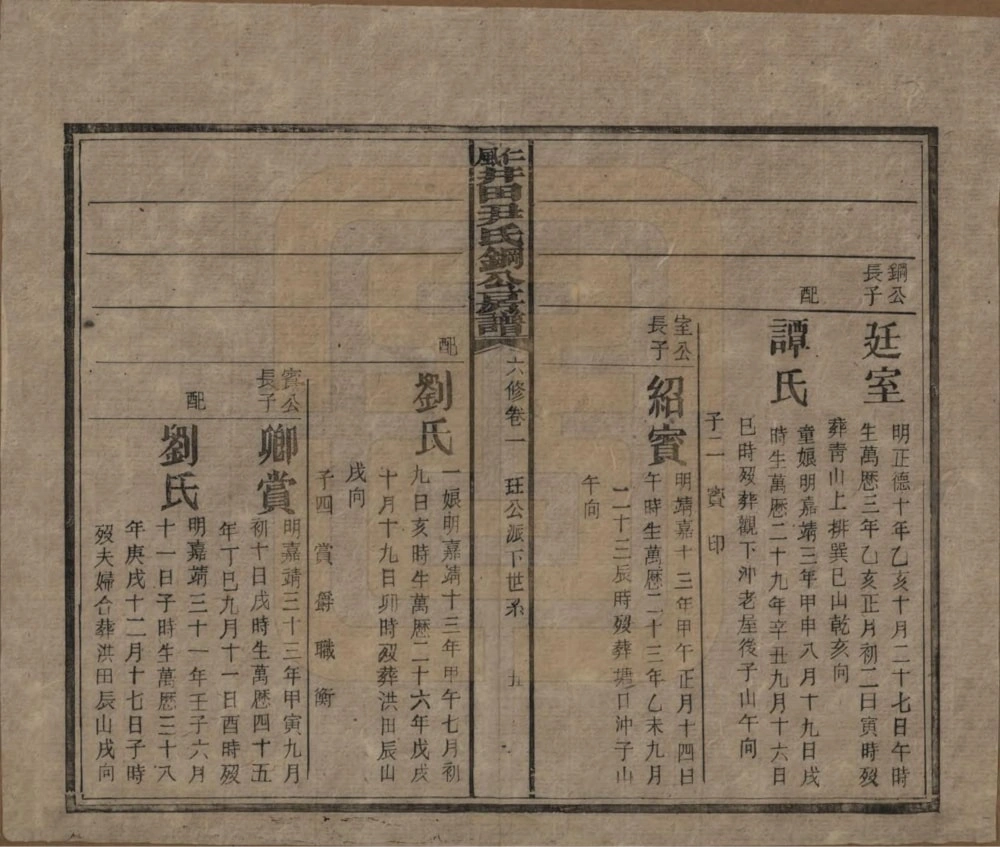 鋼公
長子
廷室
明正德十年乙亥十月二十七日午時
生萬歷三年乙亥正月初二日寅時歿
葬靑山上排巽巳山乾亥向
配
譚氏
童娘明嘉靖三年甲申八月十九日戌
時生萬歷二十九年辛丑九月十六日
巳時歿葬觀下沖老屋後子山午向
子二　賓　印
室公
長子
紹賓
明靖嘉十三年甲午正月十四日
午時生萬歷二十三年乙未九月
二十三辰時歿葬塘口沖子山
午向
仁風井田尹氏鋼公房譜
六修卷一
玨公派下世系
五
配
劉氏
一娘明嘉靖十三年甲午七月初
九日亥時生萬歷二十六年戊戌
十月十九日卯時歿葬洪田辰山
戌向
子四　賞　爵　職　衡
賓公
長子
卿賞
明嘉靖三十三年甲寅九月
初十日戌時生萬歷四十五
年丁巳九月十一日酉時歿
配
劉氏
明嘉靖三十一年壬子六月
十一日子時生萬歷三十八
年庚戌十二月十七日子時
歿夫婦合葬洪田辰山戌向